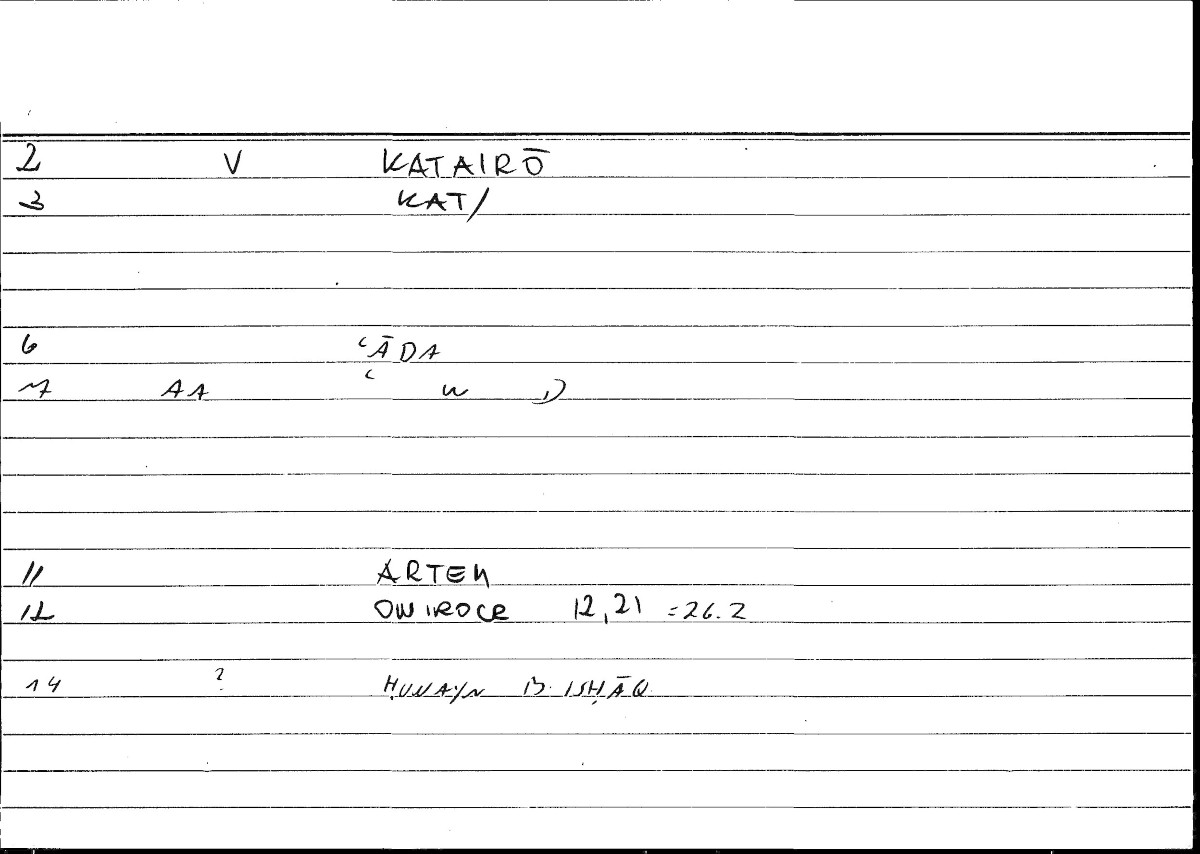 2 V KATAIRŌ
3 KAT/
6 ʿĀDA
7 AA ʿ w D
11 ARTEM
12 ONIROCR 12,21 =26.2
14 ? ḤUNAYN B. ISḤĀQ